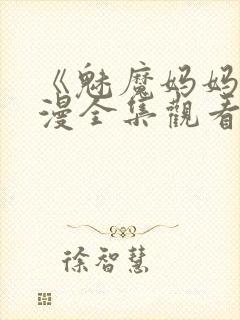 《魅魔妈妈
漫全集觀看
徐智慧